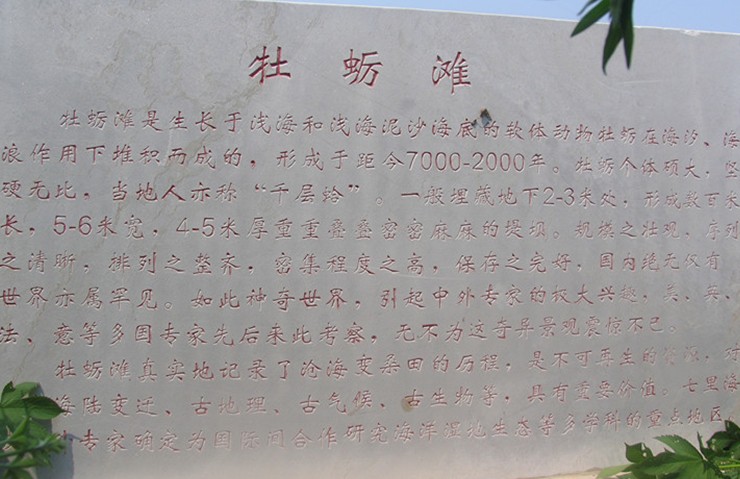 牡蛎滩
牡蛎滩是生长于浅海和浅海泥沙海底的软体动物牡蛎在海沙、海
浪作用下堆积而成的，形成于距今7000-2000年。牡蛎个体硕大，坚
硬无比，当地人亦称“千层蛤”。一般埋藏地下2-3米处，形成数百米
长，5-6米宽，4-5米厚重重叠叠密密麻麻的堤坝。规模之壮观，序列
之清晰，排列之整齐，密集程度之高，保存之完好，国内绝无仅有
世界亦属罕见。如此神奇世界，引起中外专家的极大兴趣，美、英、
法、意等多国专家先后来此考察，无不为这奇异景观震惊不已。
牡蛎滩真实地记录了沧海变桑田的历程，是不可再生的资源，对
海陆变迁、古地理、古气候、古生物等，具有重要价值。七里海
专家确定为国际间合作研究海洋湿地生态等多学科的重点地区